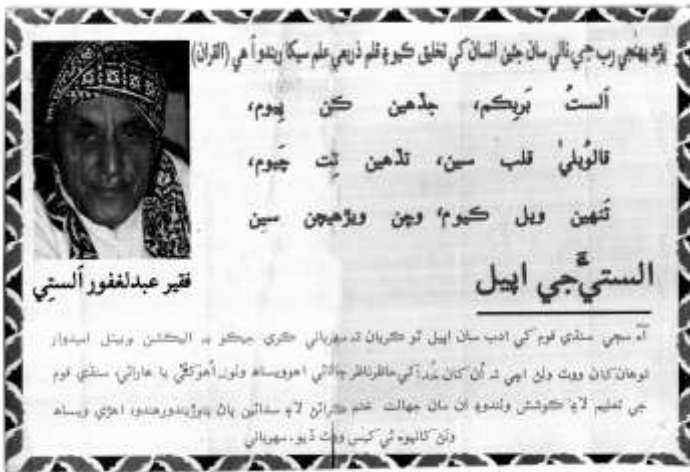 پڙھ پهنجي رب جي نالي سان جنهن انسان کي تخليق ڪيو ۽ قلم ذريعي علم سيکاريندو آهي (القران)
اَلستُ بَرِبِڪم، جڏهين ڪن پيوم،
قالوُبليٰ قلب سين، تڏهين تِت چَيوم،
تَنهين ويل ڪيوم، وچن ويڙهيچن سين
فقير عبدلغفور اَلستِي
الستيءَ جي اپيل
آءٌ سڄي سنڌي قوم کي ادب سان اپيل ٿو ڪريان ته مهرباني ڪري جيڪو به اليڪشن ۾ بيٺل اميدوار
توهان کان ووٽ وٺڻ اچي ته اُن کان کي حاظر ناظر ڄاڻائي اهو ويساھ وٺو اهو کڻي يا هارائي، سنڌي قوم
جي تعليم لاءِ ڪوشش وٺندو ۽ ان مان جهالت ختم ڪرائڻ لاءِ سدائين پاڻ پتوڙيندو رهندو، اهڙي ويساھ
وٺڻ کانپوءِ ئي کيس ووٽ ڏيو. مهرباني